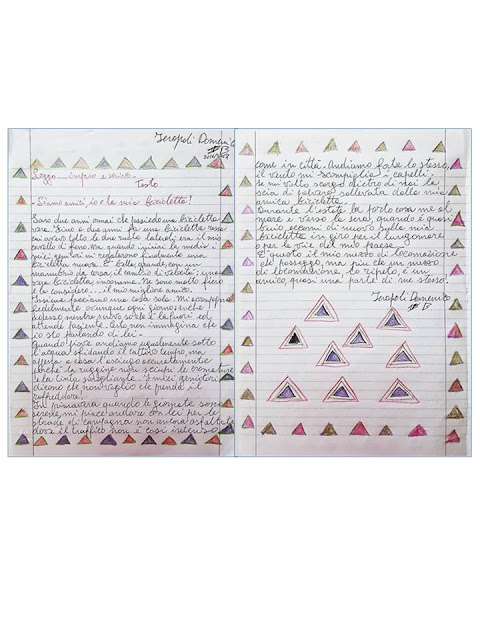 Jeropoli Domenico
Leggo... imparo e scrivo.
Testo
"Siamo amici io e la mia bicicletta"!
Sono due anni ormai che possiedo una bicicletta
vera. Fino a due anni fa una bicicletta rossa
cui avevo tolto le due ruote laterali era il mio
cavallo di ferro. Ma quando iniziai la media i
miei genitori mi regalarono finalmente una
bicicletta nuova. È bella, grande, con un
manubrio da corsa, il cambio di velocità; una
vera bicicletta, insomma. Ne sono molto fiero
e la considero... il mio migliore amico.
Insieme facciamo una cosa sola. Mi accompagna
fedelmente ovunque ogni giorno; anche
adesso mentre scrivo so che è là fuori ad
attende paziente. Certo non immagina che
io sto parlando di lei.
Quando piove andiamo ugualmente sotto
l'acqua sfidando il cattivo tempo, ma
appena a casa l'asciugo accuratamente
perché la ruggine non sciupi le cromature
e la tinta smagliante. I miei genitori
dicono che non voglio che prenda il
raffreddore!
In primavera quando le giornate sono
serene, mi piace andare con lei per le
strade di campagna non ancora asfaltate
dove il traffico non è così intenso
come in città. Andiamo forte lo stesso,
il vento mi scompiglia i capelli.
Se mi volto scorgo dietro di noi la
scia di polvere sollevata dalla mia
amica bicicletta.
Durante l'estate la porto con me al
mare e verso la sera, quando è quasi
buio eccomi di nuovo sulla mia
bicicletta in giro per il lungomare
o per le vie del mio paese.
È questo il mio mezzo di locomozione
che posseggo, ma più che un mezzo
di locomozione, lo ripeto, è un
amico, quasi una parte di me stesso!
Jeropoli Domenico